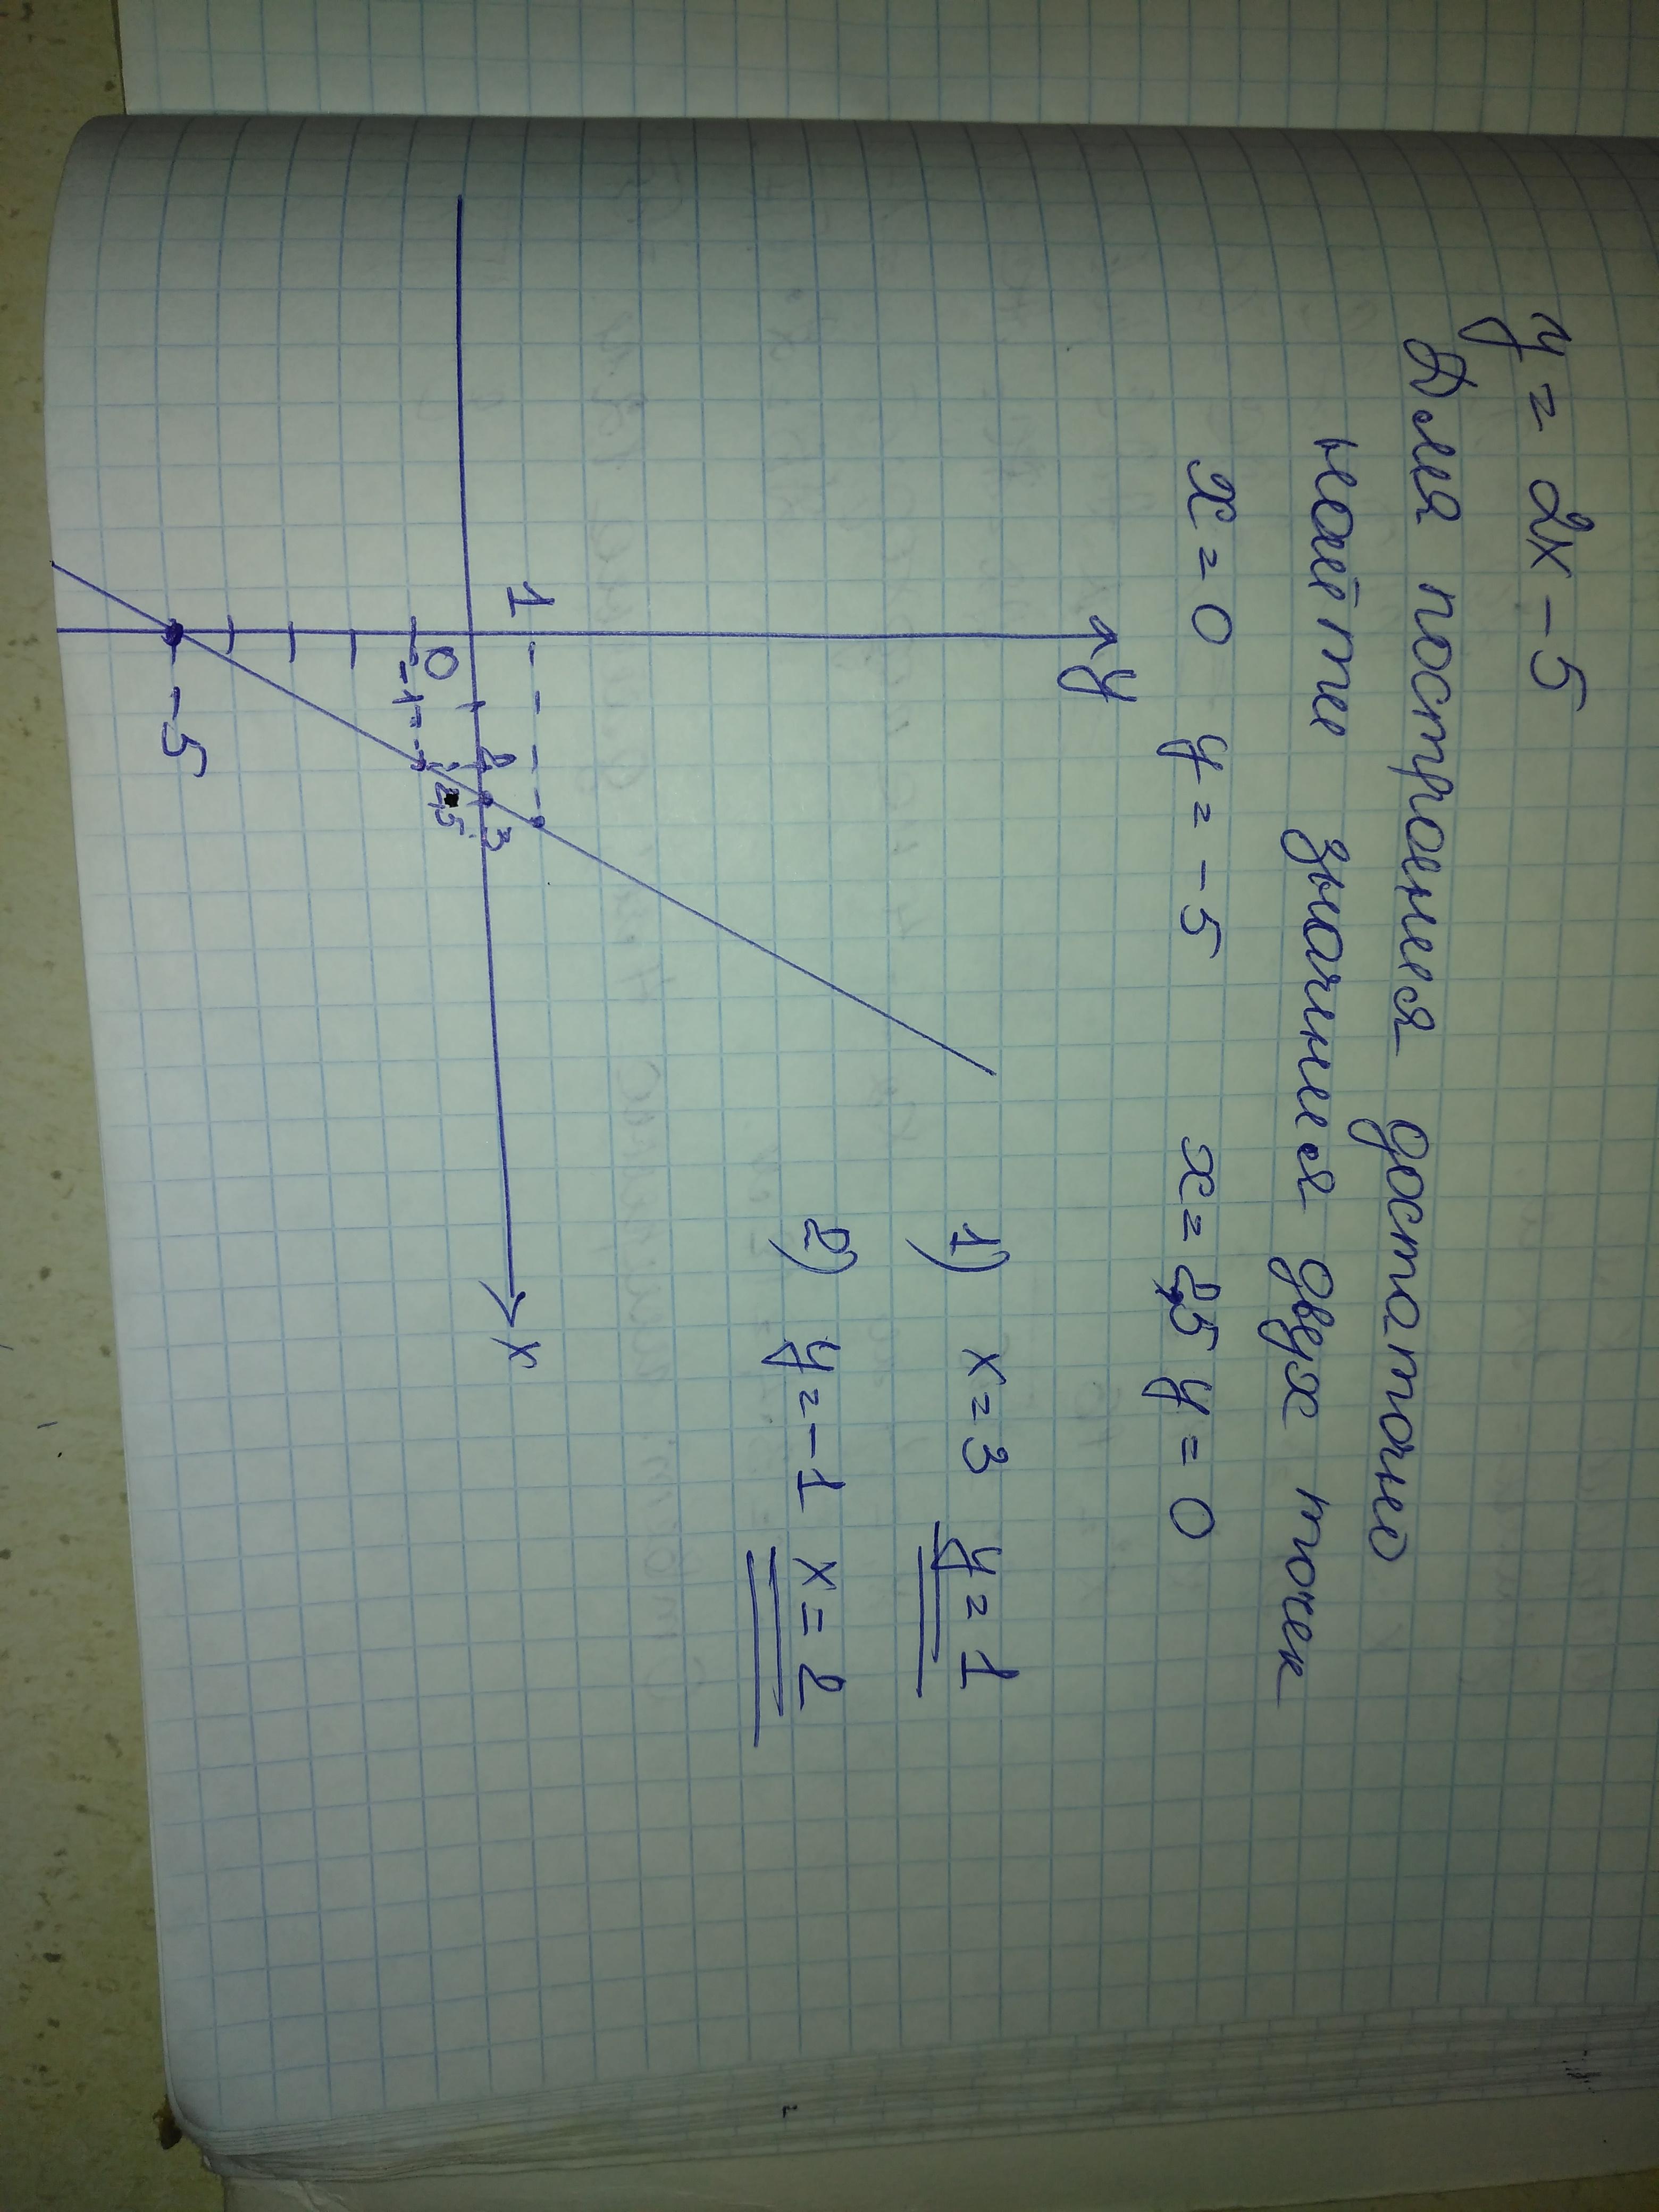 y = 2x - 5
Для построения достаточно
найти значения двух точек
x = 0 y = -5 x = 2,5 y = 0
1) x = 3 y = 1
2) y = -1 x = 2
y
1
0
-1
2
3
2,5
-5
x